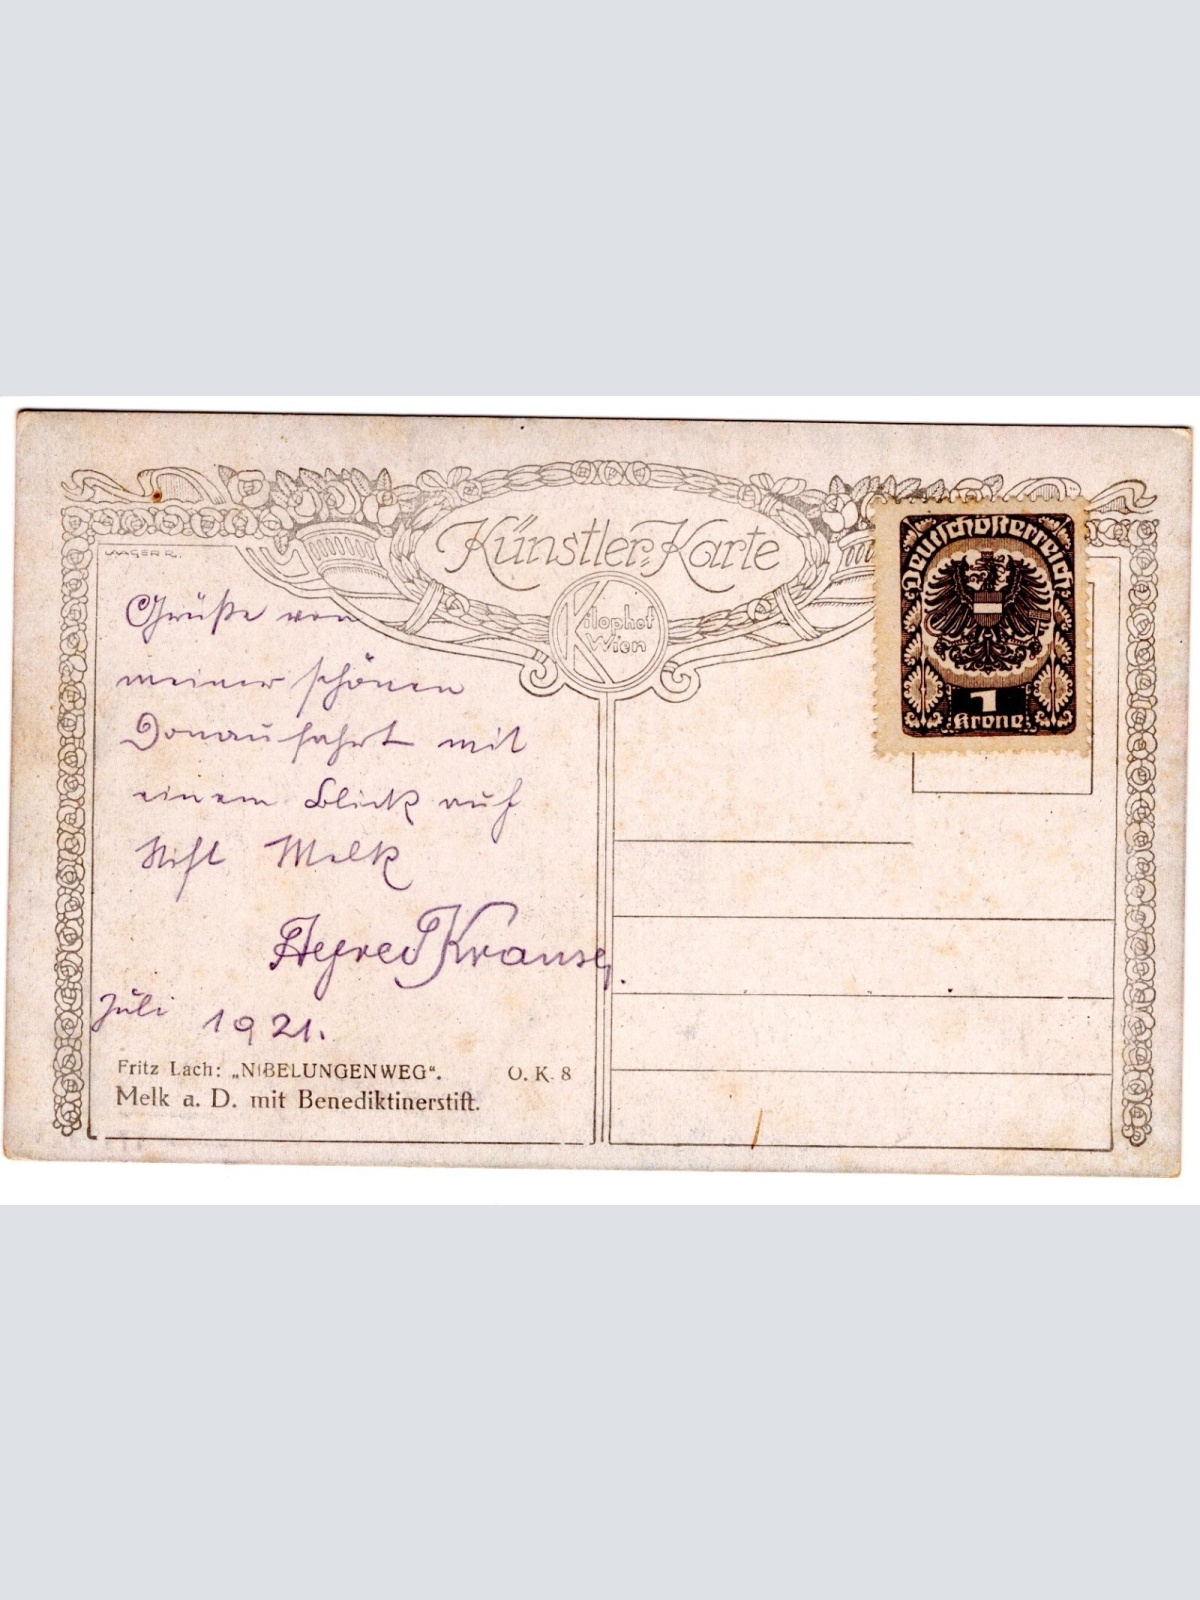 Künstler-Karte
Kilophot
Wien
Deutschösterreich
1
Krone
Grüße von
meiner schönen
Donaufahrt mit
einem Blick auf
Stift Melk
Alfred Krause
Juli 1921.
Fritz Lach: „NIBELUNGENWEG“. O. K. 8
Melk a. D. mit Benediktinerstift.